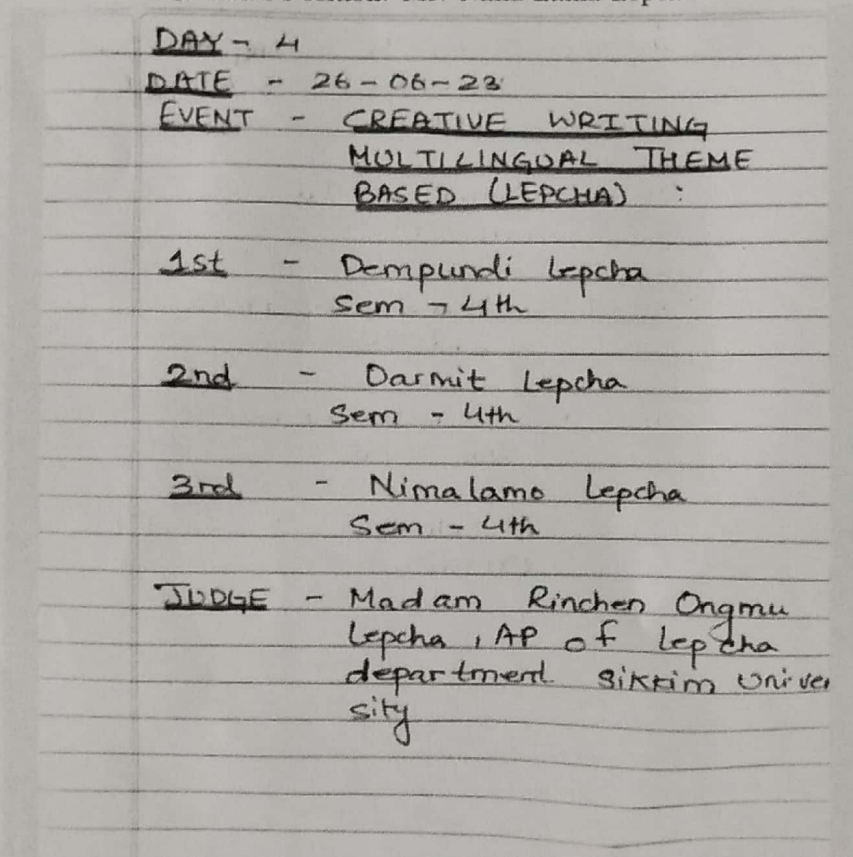 DAY - 4
DATE - 26-06-23
EVENT - CREATIVE WRITING
MULTILINGUAL THEME
BASED (LEPCHA) :
1st - Dempundi Lepcha
Sem - 4th
2nd - Darmit Lepcha
Sem - 4th
3rd - Nimalamo Lepcha
Sem - 4th
JUDGE - Madam Rinchen Ongmu
Lepcha, AP of Lepcha
department Sikkim Univer
sity